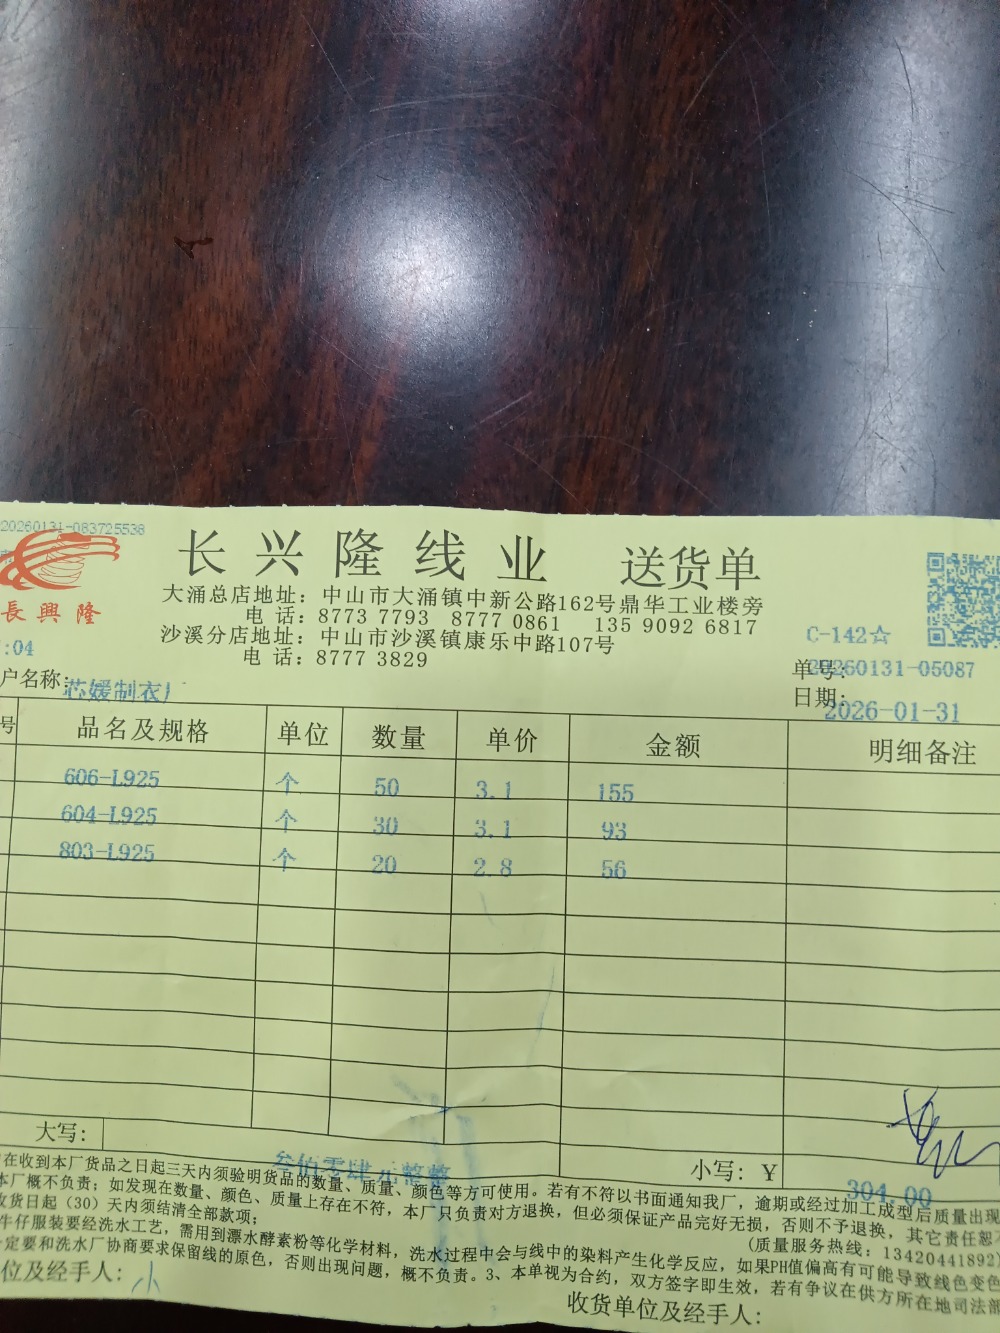 20260131-083725538
市
長興隆
:04
长兴隆线业 送货单
大涌总店地址：中山市大涌镇中新公路162号鼎华工业楼旁
电 话：8773 7793 8777 0861 135 9092 6817
沙溪分店地址：中山市沙溪镇康乐中路107号
电 话：8777 3829
C-142☆
单号：20260131-05087
日期：2026-01-31
户名称：芯媛制衣厂
号 品名及规格 单位 数量 单价 金额 明细备注
606-L925 个 50 3.1 155
604-L925 个 30 3.1 93
803-L925 个 20 2.8 56
大写： 叁佰零肆元整整 小写：￥ 304.00
在收到本厂货品之日起三天内须验明货品的数量、质量、颜色等方可使用。若有不符以书面通知我厂，逾期或经过加工成型后质量出现
本厂概不负责；如发现在数量、颜色、质量上存在不符，本厂只负责对方退换，但必须保证产品完好无损，否则不予退换，其它责任恕不
收货日起（30）天内须结清全部款项； (质量服务热线：13420441892)
牛仔服装要经洗水工艺，需用到漂水酵素粉等化学材料，洗水过程中会与线中的染料产生化学反应，如果PH值偏高有可能导致线色变色
一定要和洗水厂协商要求保留线的原色，否则出现问题，概不负责。3、本单视为合约，双方签字即生效，若有争议在供方所在地司法部
位及经手人：小 收货单位及经手人：